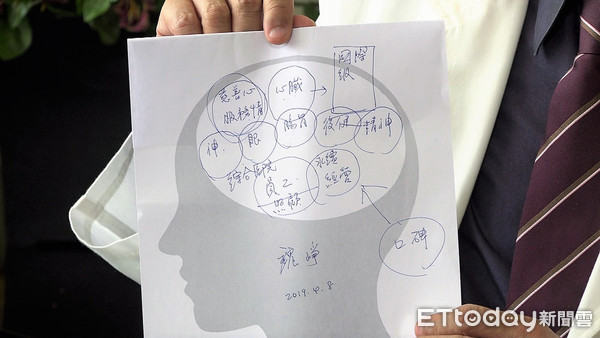 慈善心
服務熱情
心臟
國際
級
神
眼
腦育
復健
精神
綜合醫院
員工
照顧
永續
經營
口碑
魏崢
2019.4.8
ETtoday新聞雲